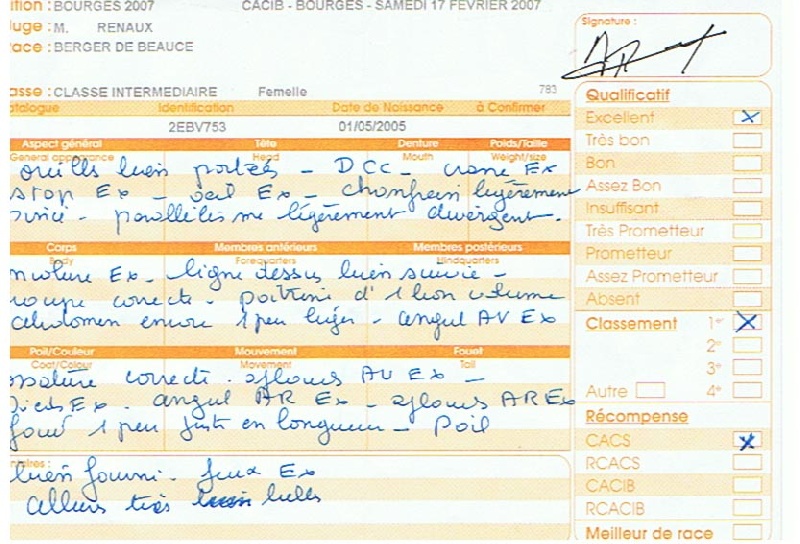 ition : BOURGES 2007 CACIB - BOURGES - SAMEDI 17 FEVRIER 2007
uge : M. RENAUX
ace : BERGER DE BEAUCE
Signature :
asse : CLASSE INTERMEDIAIRE Femelle 783
atalogue Identification Date de Naissance à Confirmer
2EBV753 01/05/2005
Qualificatif
Excellent X
Très bon
Bon
Assez Bon
Insuffisant
Très Prometteur
Prometteur
Assez Prometteur
Absent
Classement 1er X
2e
3e
Autre 4e
Récompense
CACS X
RCACS
CACIB
RCACIB
Meilleur de race
Aspect général Tête Denture Poids/Taille
General appearance Head Mouth Weight/size
bien portées - DCC - crane Ex
stop Ex - oeil Ex - chanfrein légèrement
parallélisme légèrement divergent.
Corps Membres antérieurs Membres postérieurs
Body Forequarters Hindquarters
Ex - ligne dessus bien suivie -
correcte - poitrine d'1 bon volume
abdomen encore 1 peu léger - angul AV Ex
Poil/Couleur Mouvement Fouet
Coat/Colour Movement Tail
ossature correcte - aplombs AV Ex -
pieds Ex - angul AR Ex - aplombs AR Ex
1 peu juste en longueur - Poil
ntaires :
bien fourni - feux Ex
allures très belles